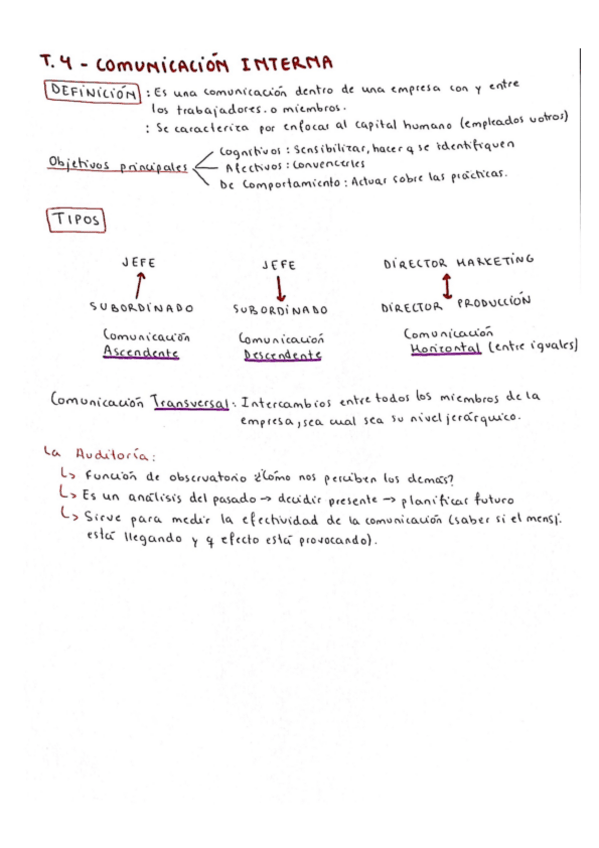 T.4 - COMUNICACIÓN INTERNA
DEFINICIÓN : Es una comunicación dentro de una empresa con y entre
los trabajadores. o miembros.
: Se caracteriza por enfocar al capital humano (empleados u otros)
Objetivos principales
Cognitivos : Sensibilizar, hacer q se identifiquen
Afectivos : Convencerles
De Comportamiento : Actuar sobre las prácticas.
TIPOS
JEFE JEFE DIRECTOR MARKETING
↑ ↓ ↕
SUBORDINADO SUBORDINADO DIRECTOR PRODUCCIÓN
Comunicación Comunicación Comunicación
Ascendente Descendente Horizontal (entre iguales)
Comunicación Transversal : Intercambios entre todos los miembros de la
empresa, sea cual sea su nivel jerárquico.
La Auditoría:
↳ Función de observatorio ¿Cómo nos perciben los demás?
↳ Es un análisis del pasado → decidir presente → planificar futuro
↳ Sirve para medir la efectividad de la comunicación (saber si el mensj.
está llegando y q efecto está provocando).